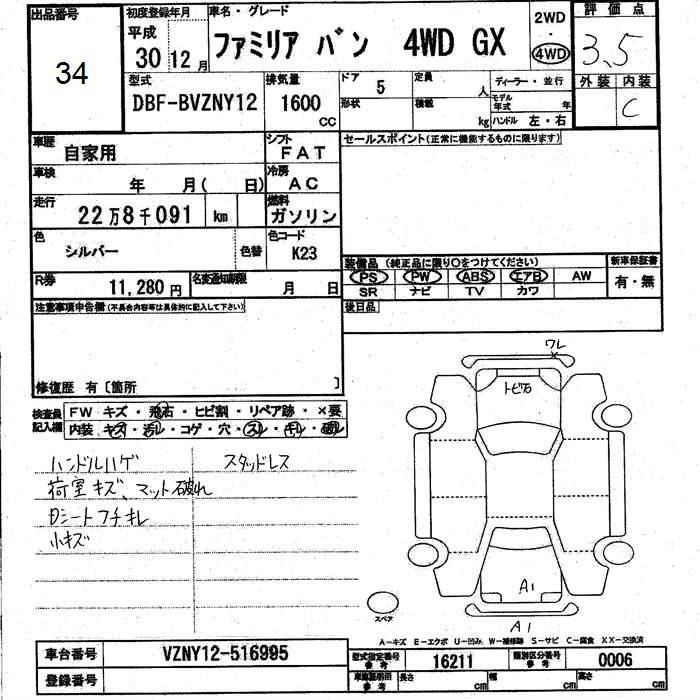 出品番号
34
初度登録年月
平成
30 12 月
車名・グレード
ファミリア バン 4WD GX
2WD
・
4WD
評価点
3.5
外装 内装
C
型式
DBF-BVZNY12
排気量
1600
CC
ドア
5
形状
定員
人
積載
kg
ディーラー・並行
モデル
年式
年
ハンドル 左・右
車歴
自家用
シフト
FAT
車検
年 月( 日)
冷房
AC
走行
22万8千091 km
燃料
ガソリン
色
シルバー
色替
色コード
K23
R券
11,280 円
名変通知期限
月 日
セールスポイント(正常に機能するものに限ります)
装備品 (純正品に限り○をつけてください)
PS PW ABS エアB AW
SR ナビ TV カワ
新車保証書
有・無
後日品
注意事項申告欄(不具合内容等は具体的に記入して下さい)
修復歴 有〔箇所 〕
検査員
記入欄
FW キズ・飛石・ヒビ割・リペア跡・×要
内装 キズ・汚レ・コゲ・穴・スレ・キレ・破れ
ハンドルハゲ
スタッドレス
荷室キズ、マット破れ
Dシートフチキレ
小キズ
ワレ
×
トビ石
A1
A1
スペア
A-キズ E-エクボ U-凹み W-補修跡 S-サビ C-腐食 XX-交換済
車台番号
VZNY12-516995
登録番号
型式指定番号
参考
16211
類別区分番号
参考
0006
車庫証明用
参考
長さ
cm
幅
cm
高さ
cm